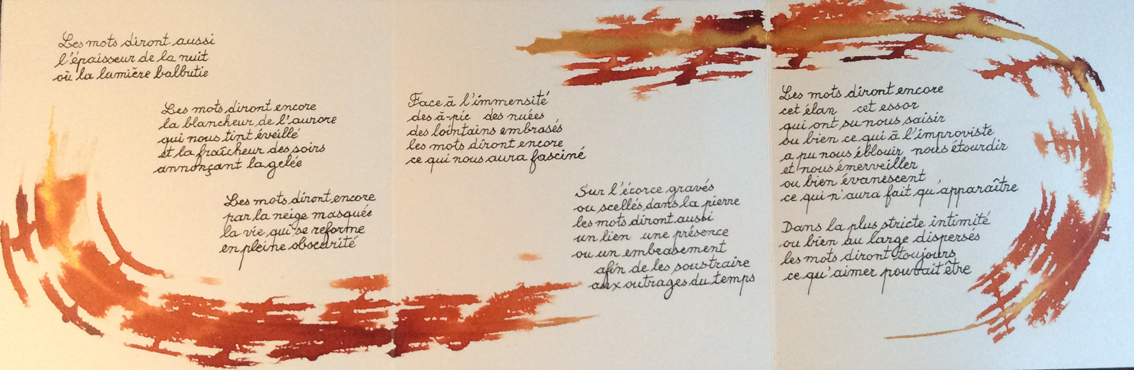 Les mots diront aussi
l'épaisseur de la nuit
où la lumière balbutie
Les mots diront encore
la blancheur de l'aurore
qui nous tint éveillé
et la fraîcheur des soirs
annonçant la gelée
Les mots diront encore
par la neige masquée
la vie qui se reforme
en pleine obscurité
Face à l'immensité
des à-pic des nuées
des lointains embrasés
les mots diront encore
ce qui nous aura fasciné
Sur l'écorce gravés
ou scellés dans la pierre
les mots diront aussi
un lien une présence
ou un embrasement
afin de les soustraire
aux outrages du temps
Les mots diront encore
cet élan cet essor
qui ont su nous saisir
ou bien ce qui à l'improviste
a pu nous éblouir nous étourdir
et nous émerveiller
ou bien évanescent
ce qui n'aura fait qu'apparaître
Dans la plus stricte intimité
ou bien au large dispersés
les mots diront toujours
ce qu'aimer pouvait être